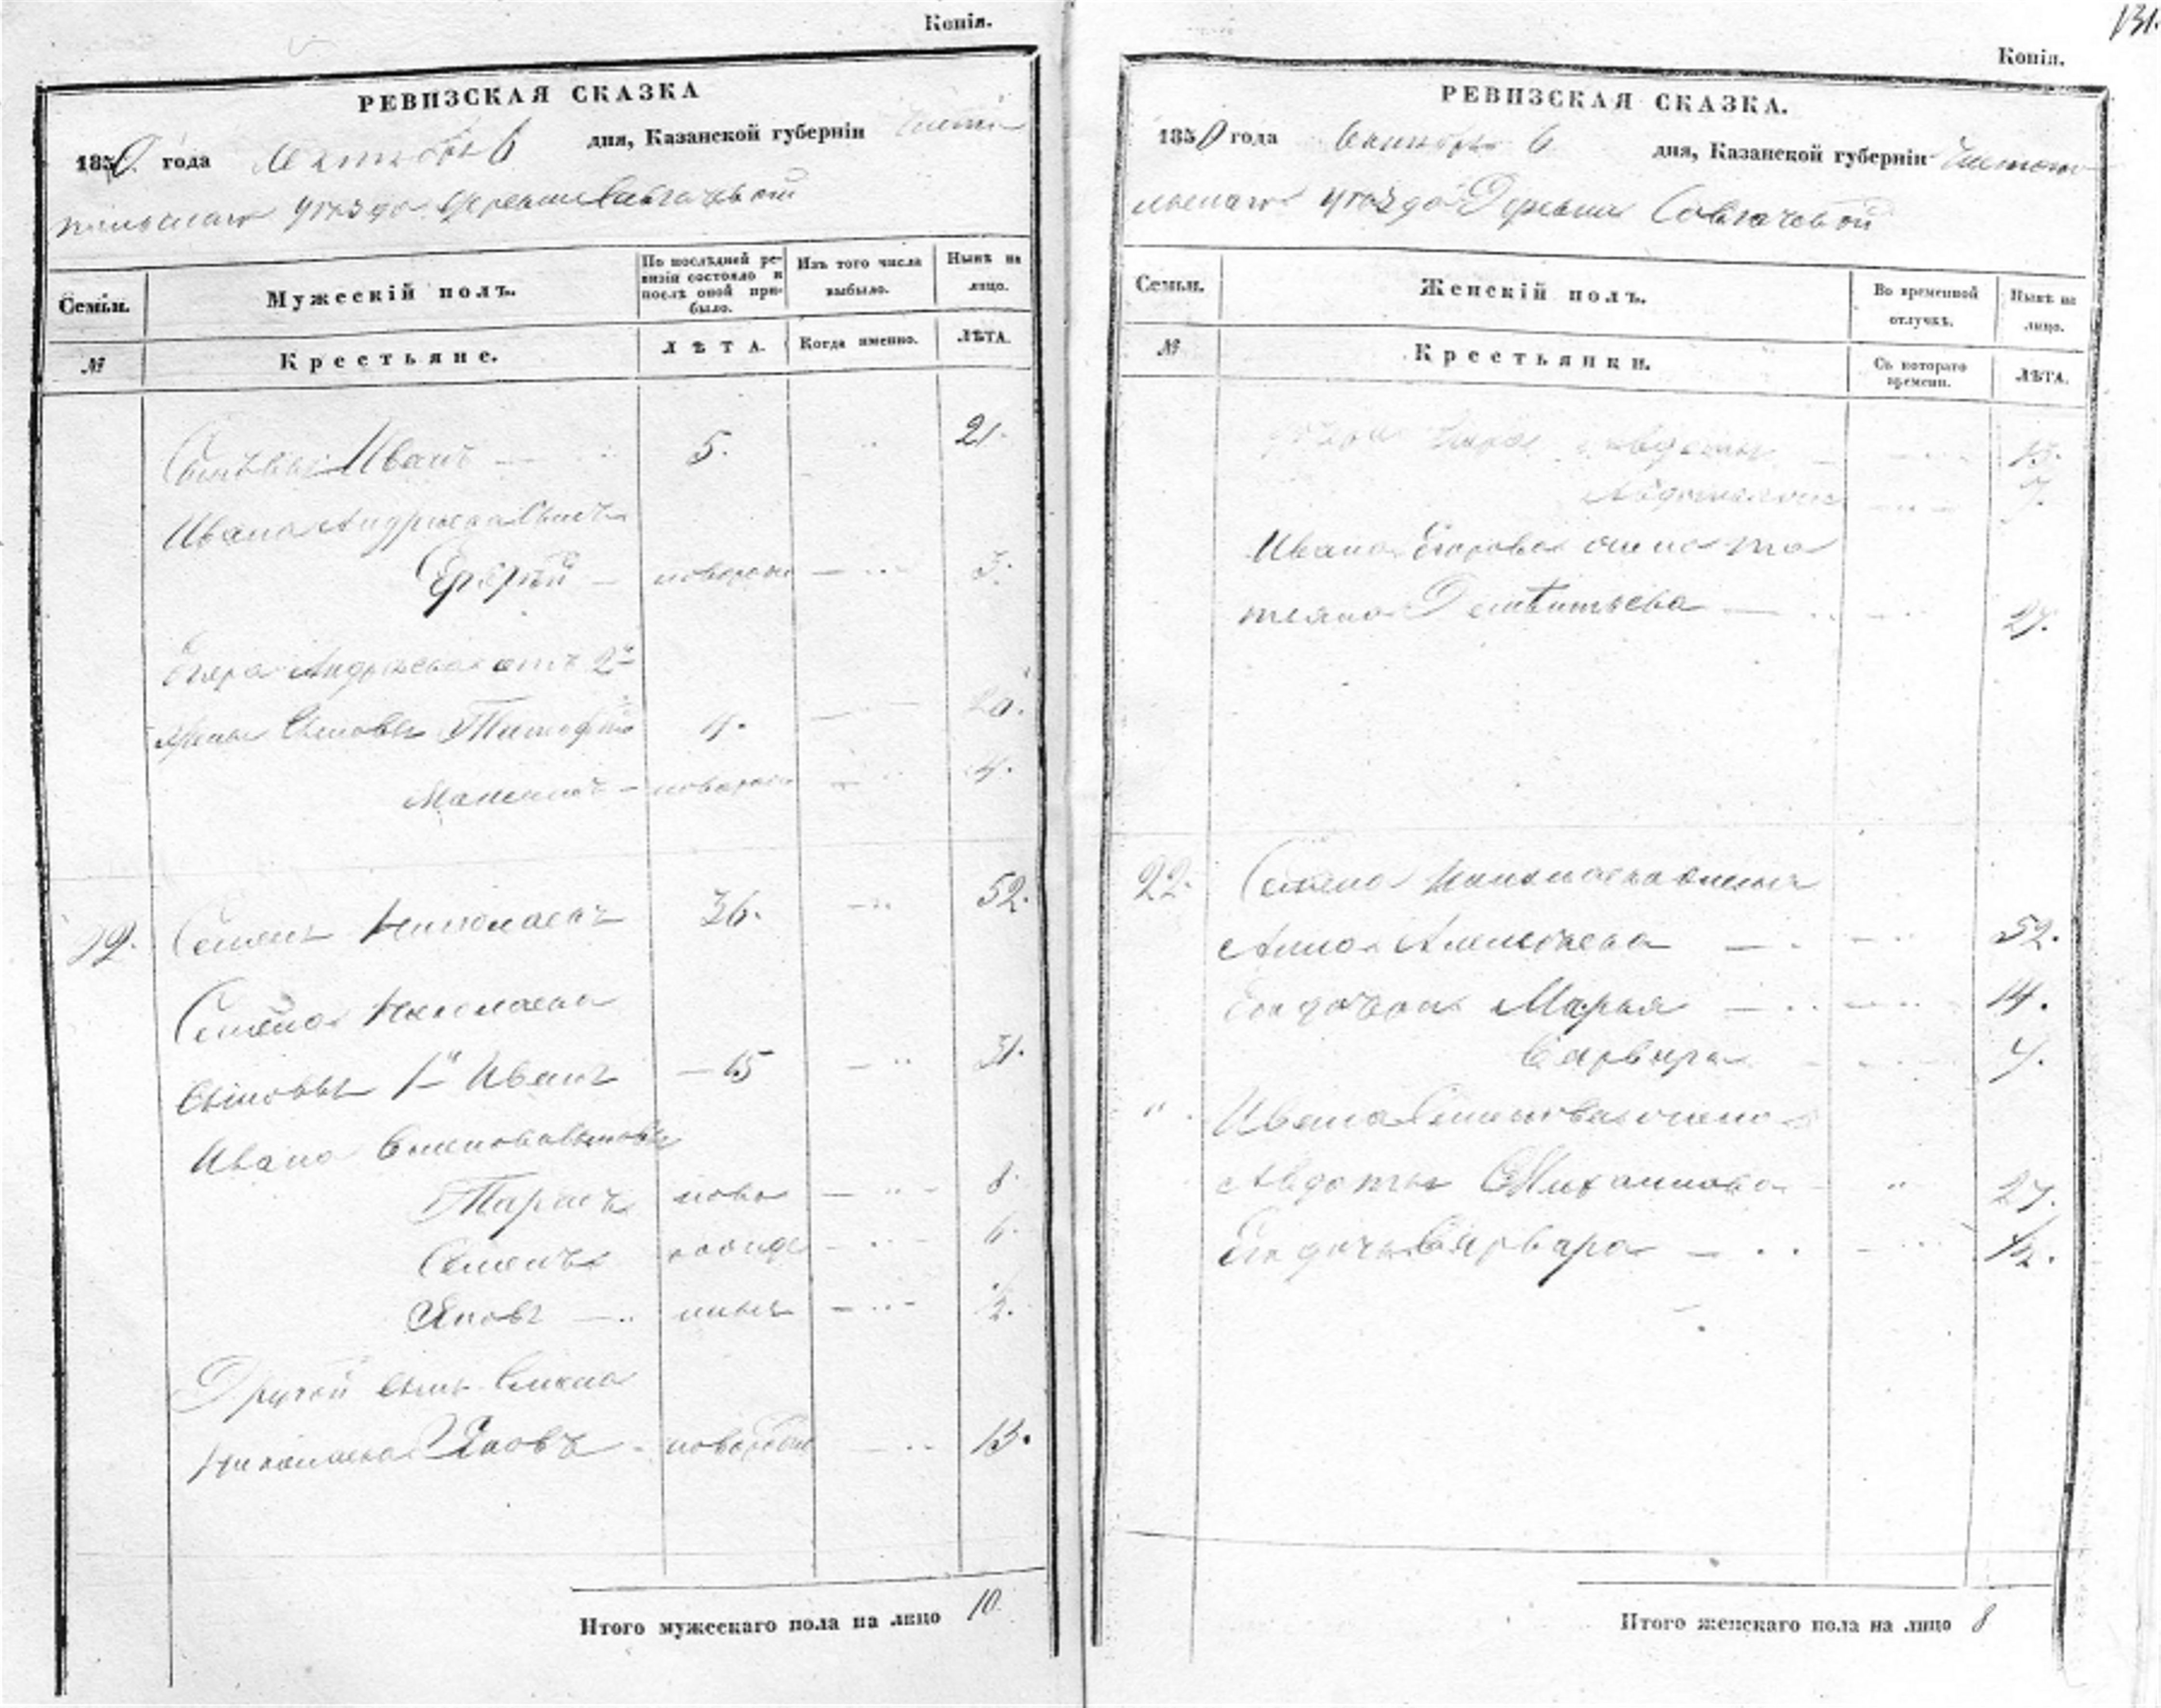 Копія.
РЕВИЗСКАЯ СКАЗКА
1850 года Октября 6 дня, Казанской губерніи Чисто
польскаго уѣзда Деревни Савгачевой
Семьи.
Мужескій полъ.
По послѣдней ре-
визіи состояло и
послѣ оной при-
было.
Изъ того числа
выбыло.
Нынѣ на
лицо.
№
Крестьяне.
ЛѢТА.
Когда именно.
ЛѢТА.
Иванъ 5. 21.
Ивана Андреева сынъ
новорож 3.
Егора Андреева отъ 2й
жены сыновья Тимофей 4. 20.
новорож 4.
22. Семенъ Николаевъ 36. 52.
Семена Николаева
сыновья 1й Иванъ 15 31.
Ивана Семенова сыновья
Тарасъ ново 8.
Семенъ рожде 6.
Яковъ ные 1/2.
Другой сынъ Семена
Николаева Яковъ новорожд 13.
Итого мужескаго пола на лицо 10
131.
Копія.
РЕВИЗСКАЯ СКАЗКА.
1850 года Октября 6 дня, Казанской губерніи Чистопо
льскаго уѣзда Деревни Савгачевой
Семьи.
Женскій полъ.
Во временной
отлучкѣ.
Нынѣ на
лицо.
№
Крестьянки.
Съ котораго
времени.
ЛѢТА.
13.
7.
Ивана Егорова жена Та
тьяна 27.
22. Семена Николаева жена
Анна Алексѣева 52.
Его дочери Марья 14.
Варвара 7.
" Ивана Семенова жена
Авдотья Михайлова " 27.
Его дочь Варвара 1/2.
Итого женскаго пола на лицо 8